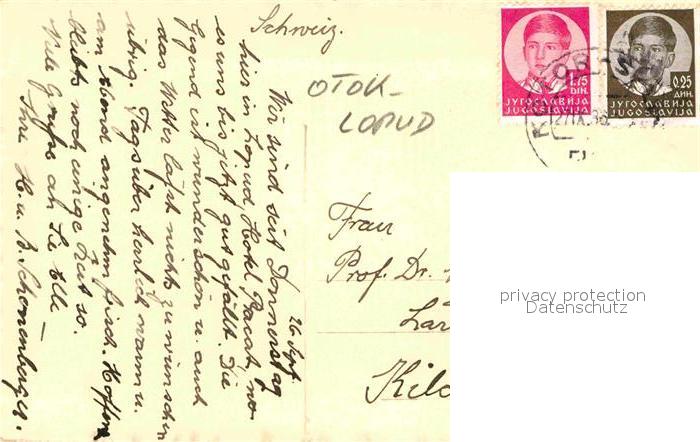 Schweiz.
26. Sept.
Wir sind seit Donnerstag
hier in Lopud, Hotel Pracat, wo
es uns bis jetzt gut gefällt. Die
Gegend ist wunderschön u. auch
das Wetter lässt nichts zu wünschen
übrig. Tagsüber herrlich warm u.
am Abend angenehm frisch. Hoffen
bleibts noch einige Zeit so.
Viele Grüsse an Sie Alle
Ihre H. u. B. Schönenberger.
OTOK-
LOPUD
1.75
DIN.
ЈУГОСЛАВИЈА
JUGOSLAVIJA
0.25
ДИН.
ЈУГОСЛАВИЈА
JUGOSLAVIJA
Frau
Prof. Dr.
Kilc
privacy protection
Datenschutz